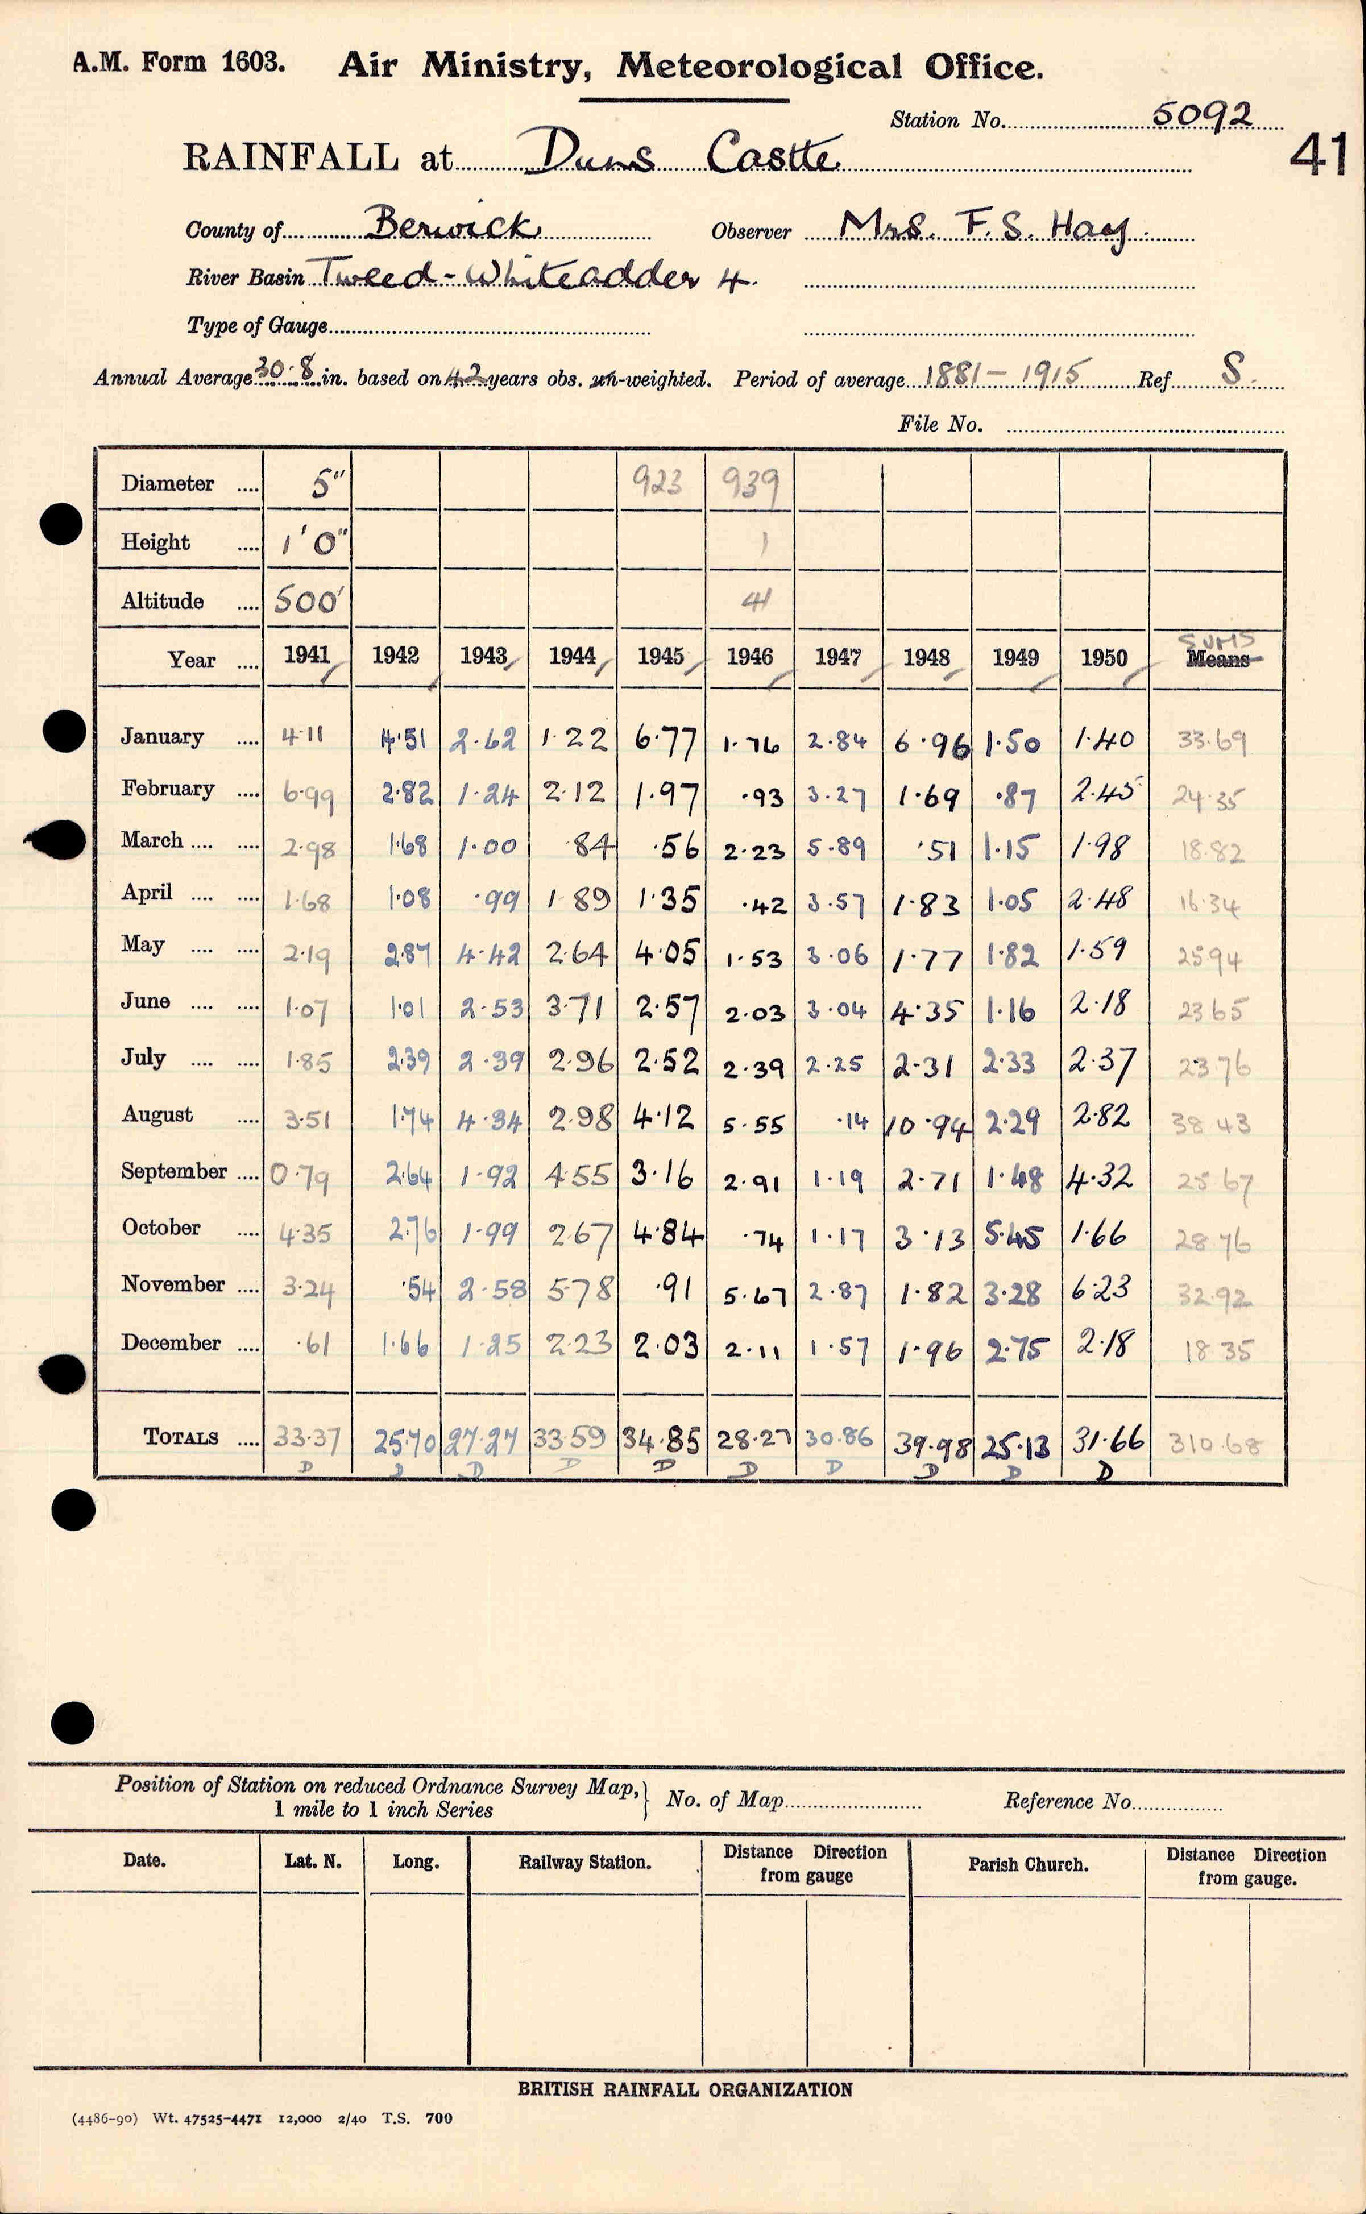 A.M. Form 1603. Air Ministry, Meteorological Office.
Station No. 5092
41
RAINFALL at Duns Castle
County of Berwick Observer Mrs. F. S. Hay
River Basin Tweed - Whiteadder 4.
Type of Gauge
Annual Average 30.8 in. based on 42 years obs. un-weighted. Period of average 1881-1915 Ref S.
File No.
Diameter .... 5" 923 939
Height .... 1' 0" 1
Altitude .... 500' 41
SUMS
Year .... 1941 1942 1943 1944 1945 1946 1947 1948 1949 1950 Means
January .... 4.11 4.51 2.62 1.22 6.77 1.76 2.84 6.96 1.50 1.40 33.69
February .... 6.99 2.82 1.24 2.12 1.97 .93 3.27 1.69 .87 2.45 24.35
March .... .... 2.98 1.68 1.00 .84 .56 2.23 5.89 .51 1.15 1.98 18.82
April .... .... 1.68 1.08 .99 1.89 1.35 .42 3.57 1.83 1.05 2.48 16.34
May .... .... 2.19 2.87 4.42 2.64 4.05 1.53 3.06 1.77 1.82 1.59 25.94
June .... .... 1.07 1.01 2.53 3.71 2.57 2.03 3.04 4.35 1.16 2.18 23.65
July .... .... 1.85 2.39 2.39 2.96 2.52 2.39 2.25 2.31 2.33 2.37 23.76
August .... 3.51 1.74 4.34 2.98 4.12 5.55 .14 10.94 2.29 2.82 38.43
September .... 0.79 2.64 1.92 4.55 3.16 2.91 1.19 2.71 1.48 4.32 25.67
October .... 4.35 2.76 1.99 2.67 4.84 .74 1.17 3.13 5.45 1.66 28.76
November .... 3.24 .54 2.58 5.78 .91 5.67 2.87 1.82 3.28 6.23 32.92
December .... .61 1.66 1.25 2.23 2.03 2.11 1.57 1.96 2.75 2.18 18.35
TOTALS .... 33.37 25.70 27.27 33.59 34.85 28.27 30.86 39.98 25.13 31.66 310.68
D D D D D D D D D D
Position of Station on reduced Ordnance Survey Map, 1 mile to 1 inch Series } No. of Map Reference No.
Date. Lat. N. Long. Railway Station. Distance Direction from gauge Parish Church. Distance Direction from gauge.
BRITISH RAINFALL ORGANIZATION
(4486-90) Wt. 47525-4471 12,000 2/40 T.S. 700